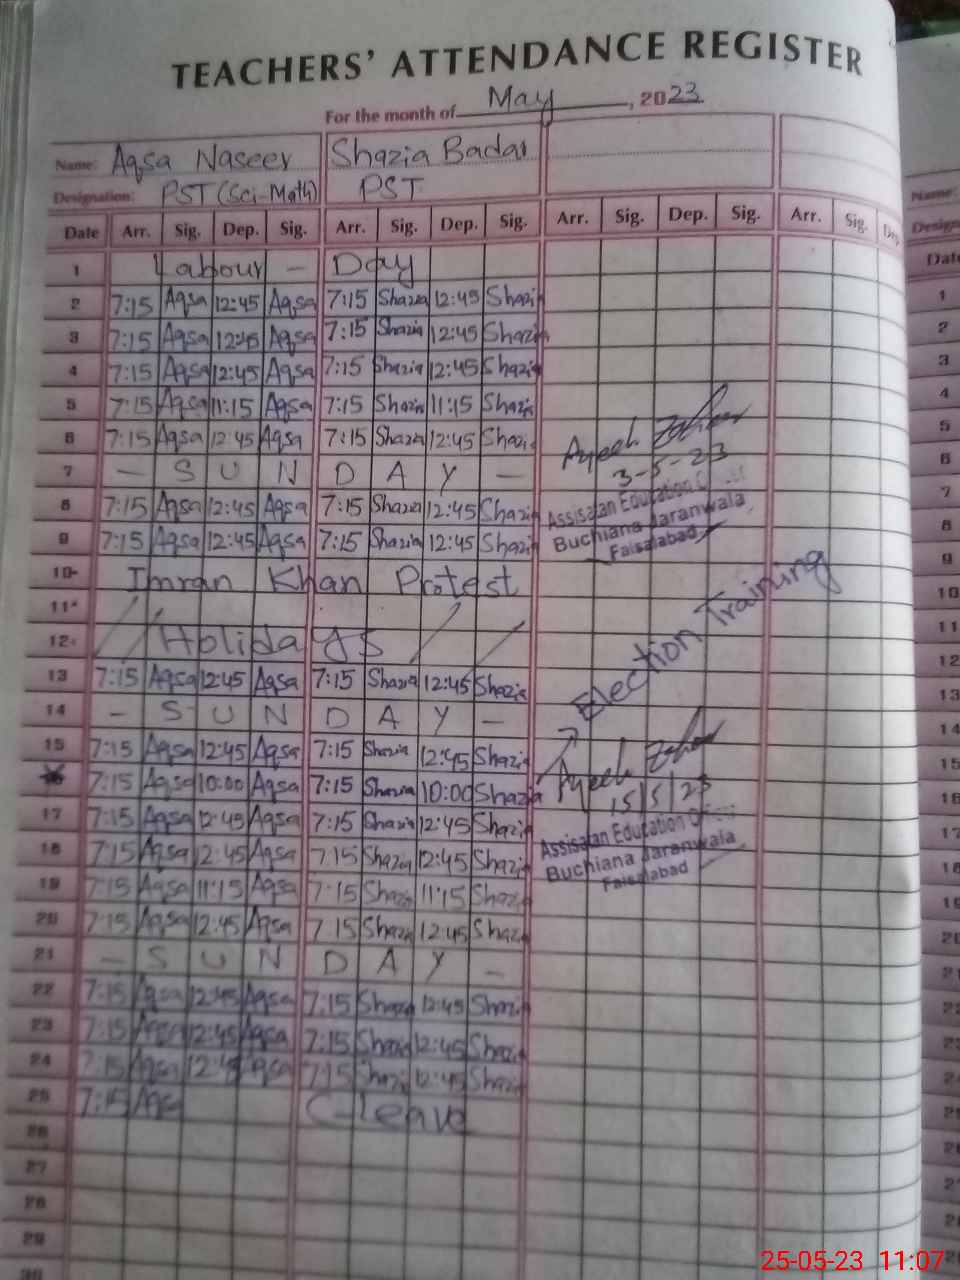 TEACHERS' ATTENDANCE REGISTER
For the month of May, 2023
Name: Aqsa Naseer Shazia Badar
Designation: PST (Sci-Math) PST
Date Arr. Sig. Dep. Sig. Arr. Sig. Dep. Sig. Arr. Sig. Dep. Sig. Arr. Sig. Dep
1 Labour - Day
2 7:15 Aqsa 12:45 Aqsa 7:15 Shazia 12:45 Shazia
3 7:15 Aqsa 12:45 Aqsa 7:15 Shazia 12:45 Shazia
4 7:15 Aqsa 12:45 Aqsa 7:15 Shazia 12:45 Shazia
5 7:15 Aqsa 11:15 Aqsa 7:15 Shazia 11:15 Shazia
6 7:15 Aqsa 12:45 Aqsa 7:15 Shazia 12:45 Shazia
3-5-23
7 - S U N D A Y -
Assisatan Education
8 7:15 Aqsa 12:45 Aqsa 7:15 Shazia 12:45 Shazia
Buchiana Jaranwala
9 7:15 Aqsa 12:45 Aqsa 7:15 Shazia 12:45 Shazia
Faisalabad
10 Imran Khan Protest
11
12 Holidays
Election Training
13 7:15 Aqsa 12:45 Aqsa 7:15 Shazia 12:45 Shazia
14 - S U N D A Y -
15 7:15 Aqsa 12:45 Aqsa 7:15 Shazia 12:45 Shazia
16 7:15 Aqsa 10:00 Aqsa 7:15 Shazia 10:00 Shazia
15/5/23
17 7:15 Aqsa 12:45 Aqsa 7:15 Shazia 12:45 Shazia
Assisatan Education
18 7:15 Aqsa 12:45 Aqsa 7:15 Shazia 12:45 Shazia
Buchiana Jaranwala
Faisalabad
19 7:15 Aqsa 11:15 Aqsa 7:15 Shazia 11:15 Shazia
20 7:15 Aqsa 12:45 Aqsa 7:15 Shazia 12:45 Shazia
21 - S U N D A Y -
22 7:15 Aqsa 12:45 Aqsa 7:15 Shazia 12:45 Shazia
23 7:15 Aqsa 12:45 Aqsa 7:15 Shazia 12:45 Shazia
24 7:15 Aqsa 12:45 Aqsa 7:15 Shazia 12:45 Shazia
25 7:15 Aqs C-Leave
26
27
28
29
30
Name:
Date
1
2
3
4
5
6
7
8
9
10
11
12
13
14
15
16
17
18
19
20
21
25-05-23 11:07